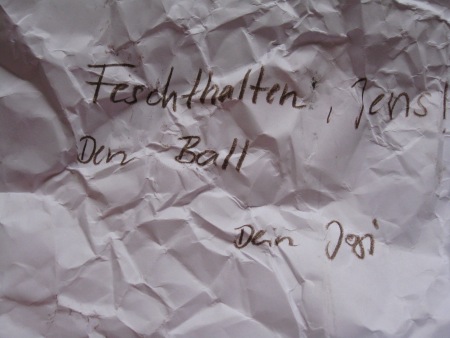 Feschthalten, Jens!
Den Ball
Dein Jogi